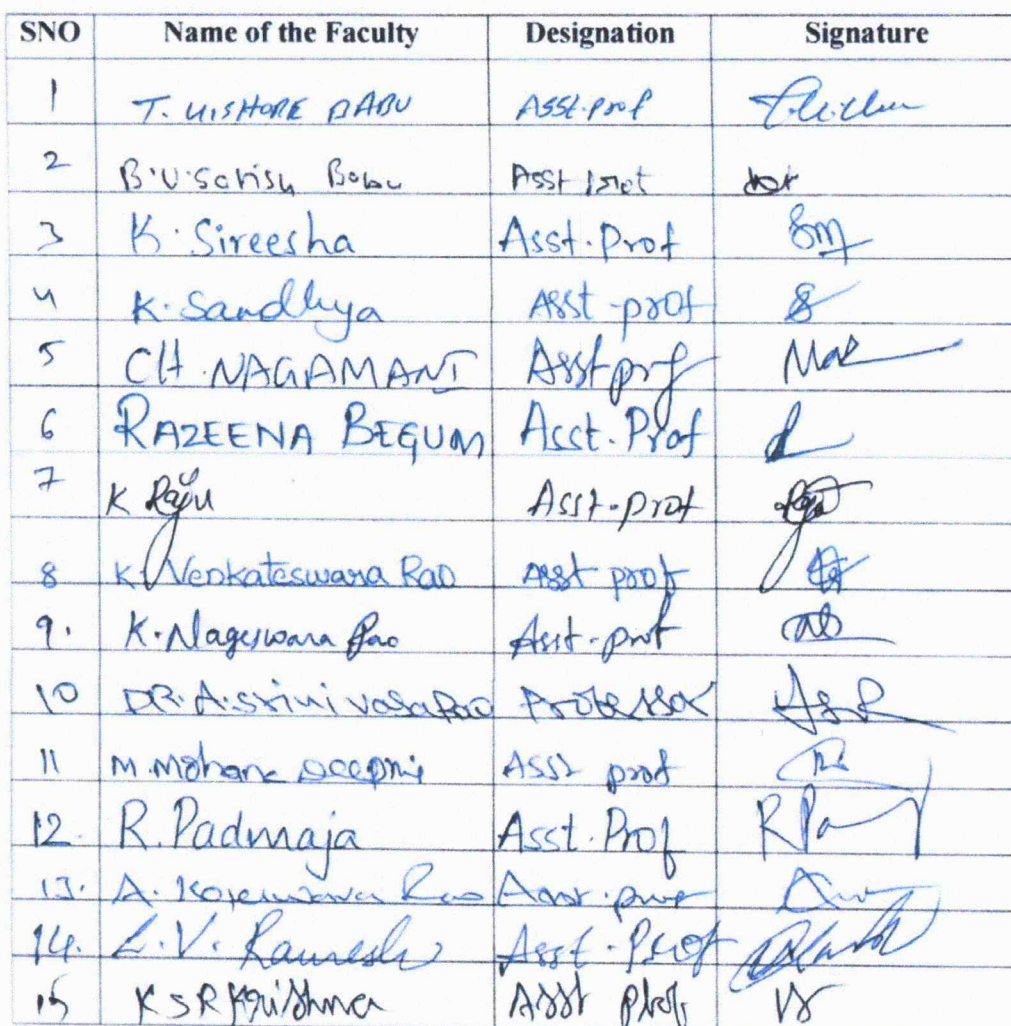 SNO Name of the Faculty Designation Signature
1 T. KISHORE BABU Asst.prof
2 B.V.Satish Babu Asst prof
3 K. Sireesha Asst. Prof
4 K. Sandhya Asst-prof
5 CH. NAGAMANI Asst prof
6 RAZEENA BEGUM Asst. Prof
7 K Raju Asst-prof Raju
8 K. Venkateswara Rao Asst prof
9. K. Nageswara Rao Asst-prof
10 DR. A.srinivasaRao Professor
11 M. Mohana Asst prof
12. R. Padmaja Asst. Prof R Pa
13. A. Rao Asst. prof
14. L.V. Ramesh Asst-Prof
15 K S R Krishna Asst Prof